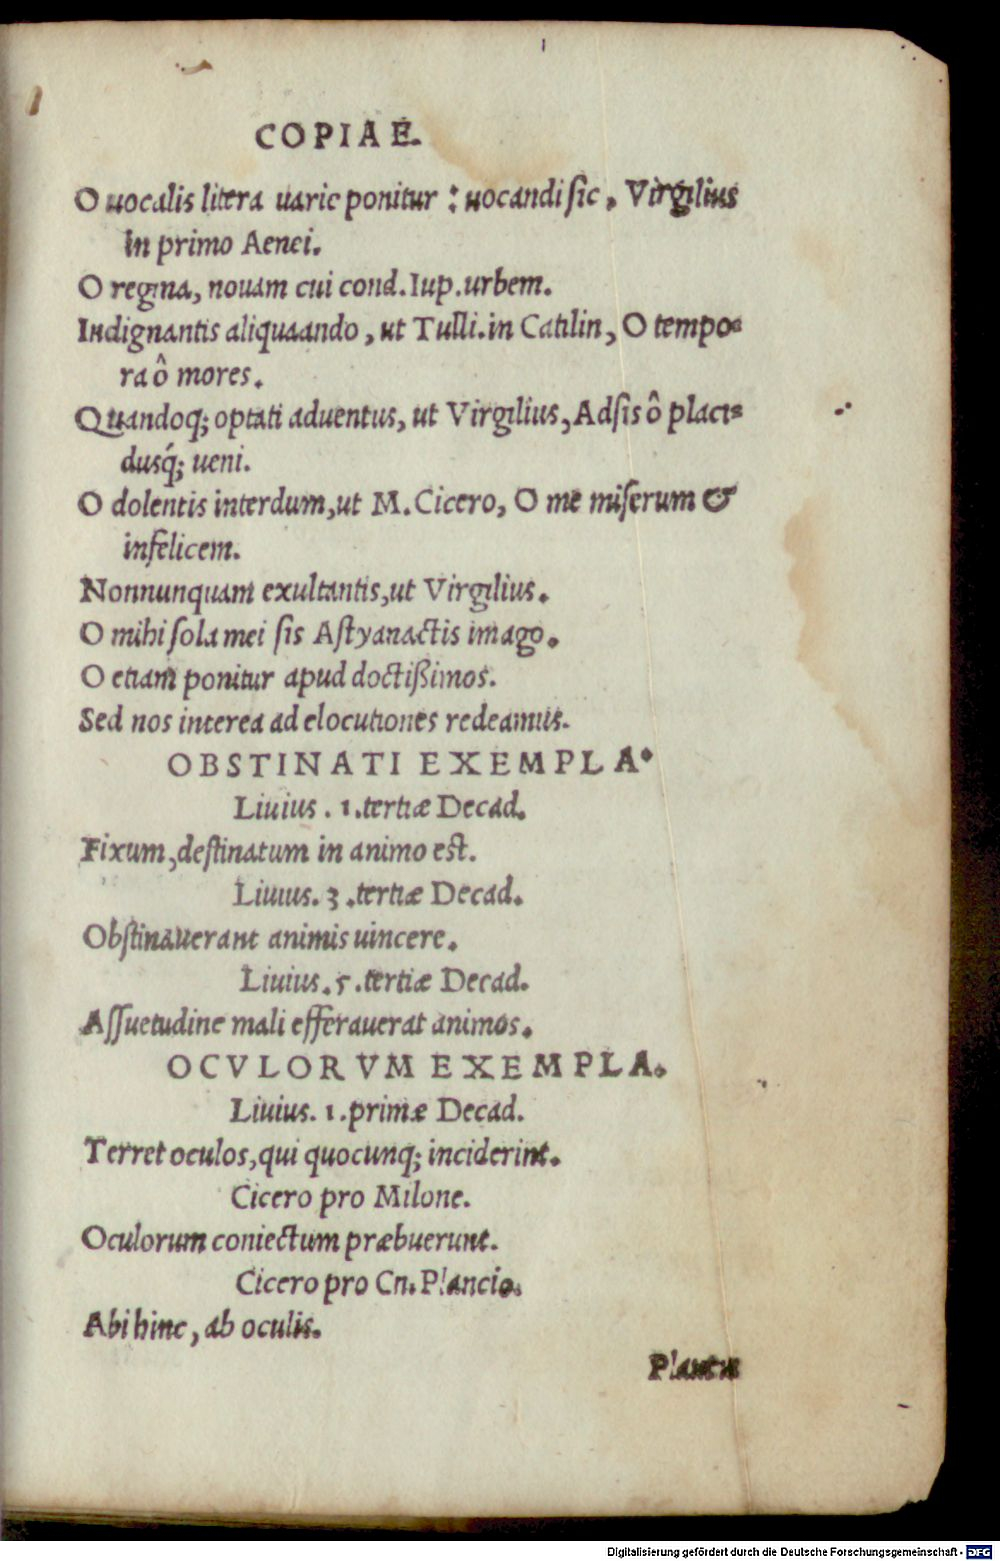 COPIAE.
O uocalis litera uarie ponitur : uocandi sic, Virgilius
In primo Aenei.
O regina, nouam cui cond. Iup. urbem.
Indignantis aliquaando, ut Tulli. in Catilin, O tempo=
ra ô mores.
Quandoq; optati aduentus, ut Virgilius, Adsis ô placi=
dusq́; ueni.
O dolentis interdum, ut M. Cicero, O me miserum &
infelicem.
Nonnunquam exultantis, ut Virgilius.
O mihi sola mei sis Astyanactis imago.
O etiam ponitur apud doctißimos.
Sed nos interea ad elocutiones redeamus.
OBSTINATI EXEMPLA.
Liuius. 1. tertiæ Decad.
Fixum, destinatum in animo est.
Liuius. 3. tertiæ Decad.
Obstinauerant animis uincere.
Liuius. 5. tertiæ Decad.
Assuetudine mali efferauerat animos.
OCVLORVM EXEMPLA.
Liuius. 1. primæ Decad.
Terret oculos, qui quocunq; inciderint.
Cicero pro Milone.
Oculorum coniectum præbuerunt.
Cicero pro Cn. Plancio.
Abi hinc, ab oculis.
Digitalisierung gefördert durch die Deutsche Forschungsgemeinschaft - DFG